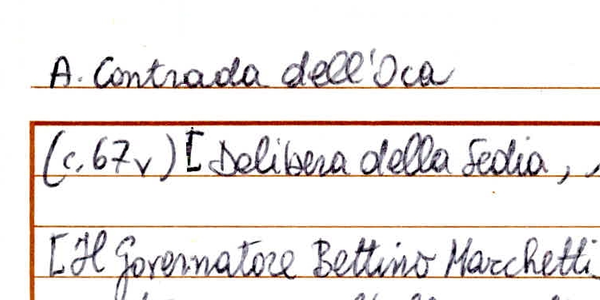 A. Contrada dell'Oca
(c. 67v) [Delibera della Sedia,
[Il Governatore Bettino Marchetti